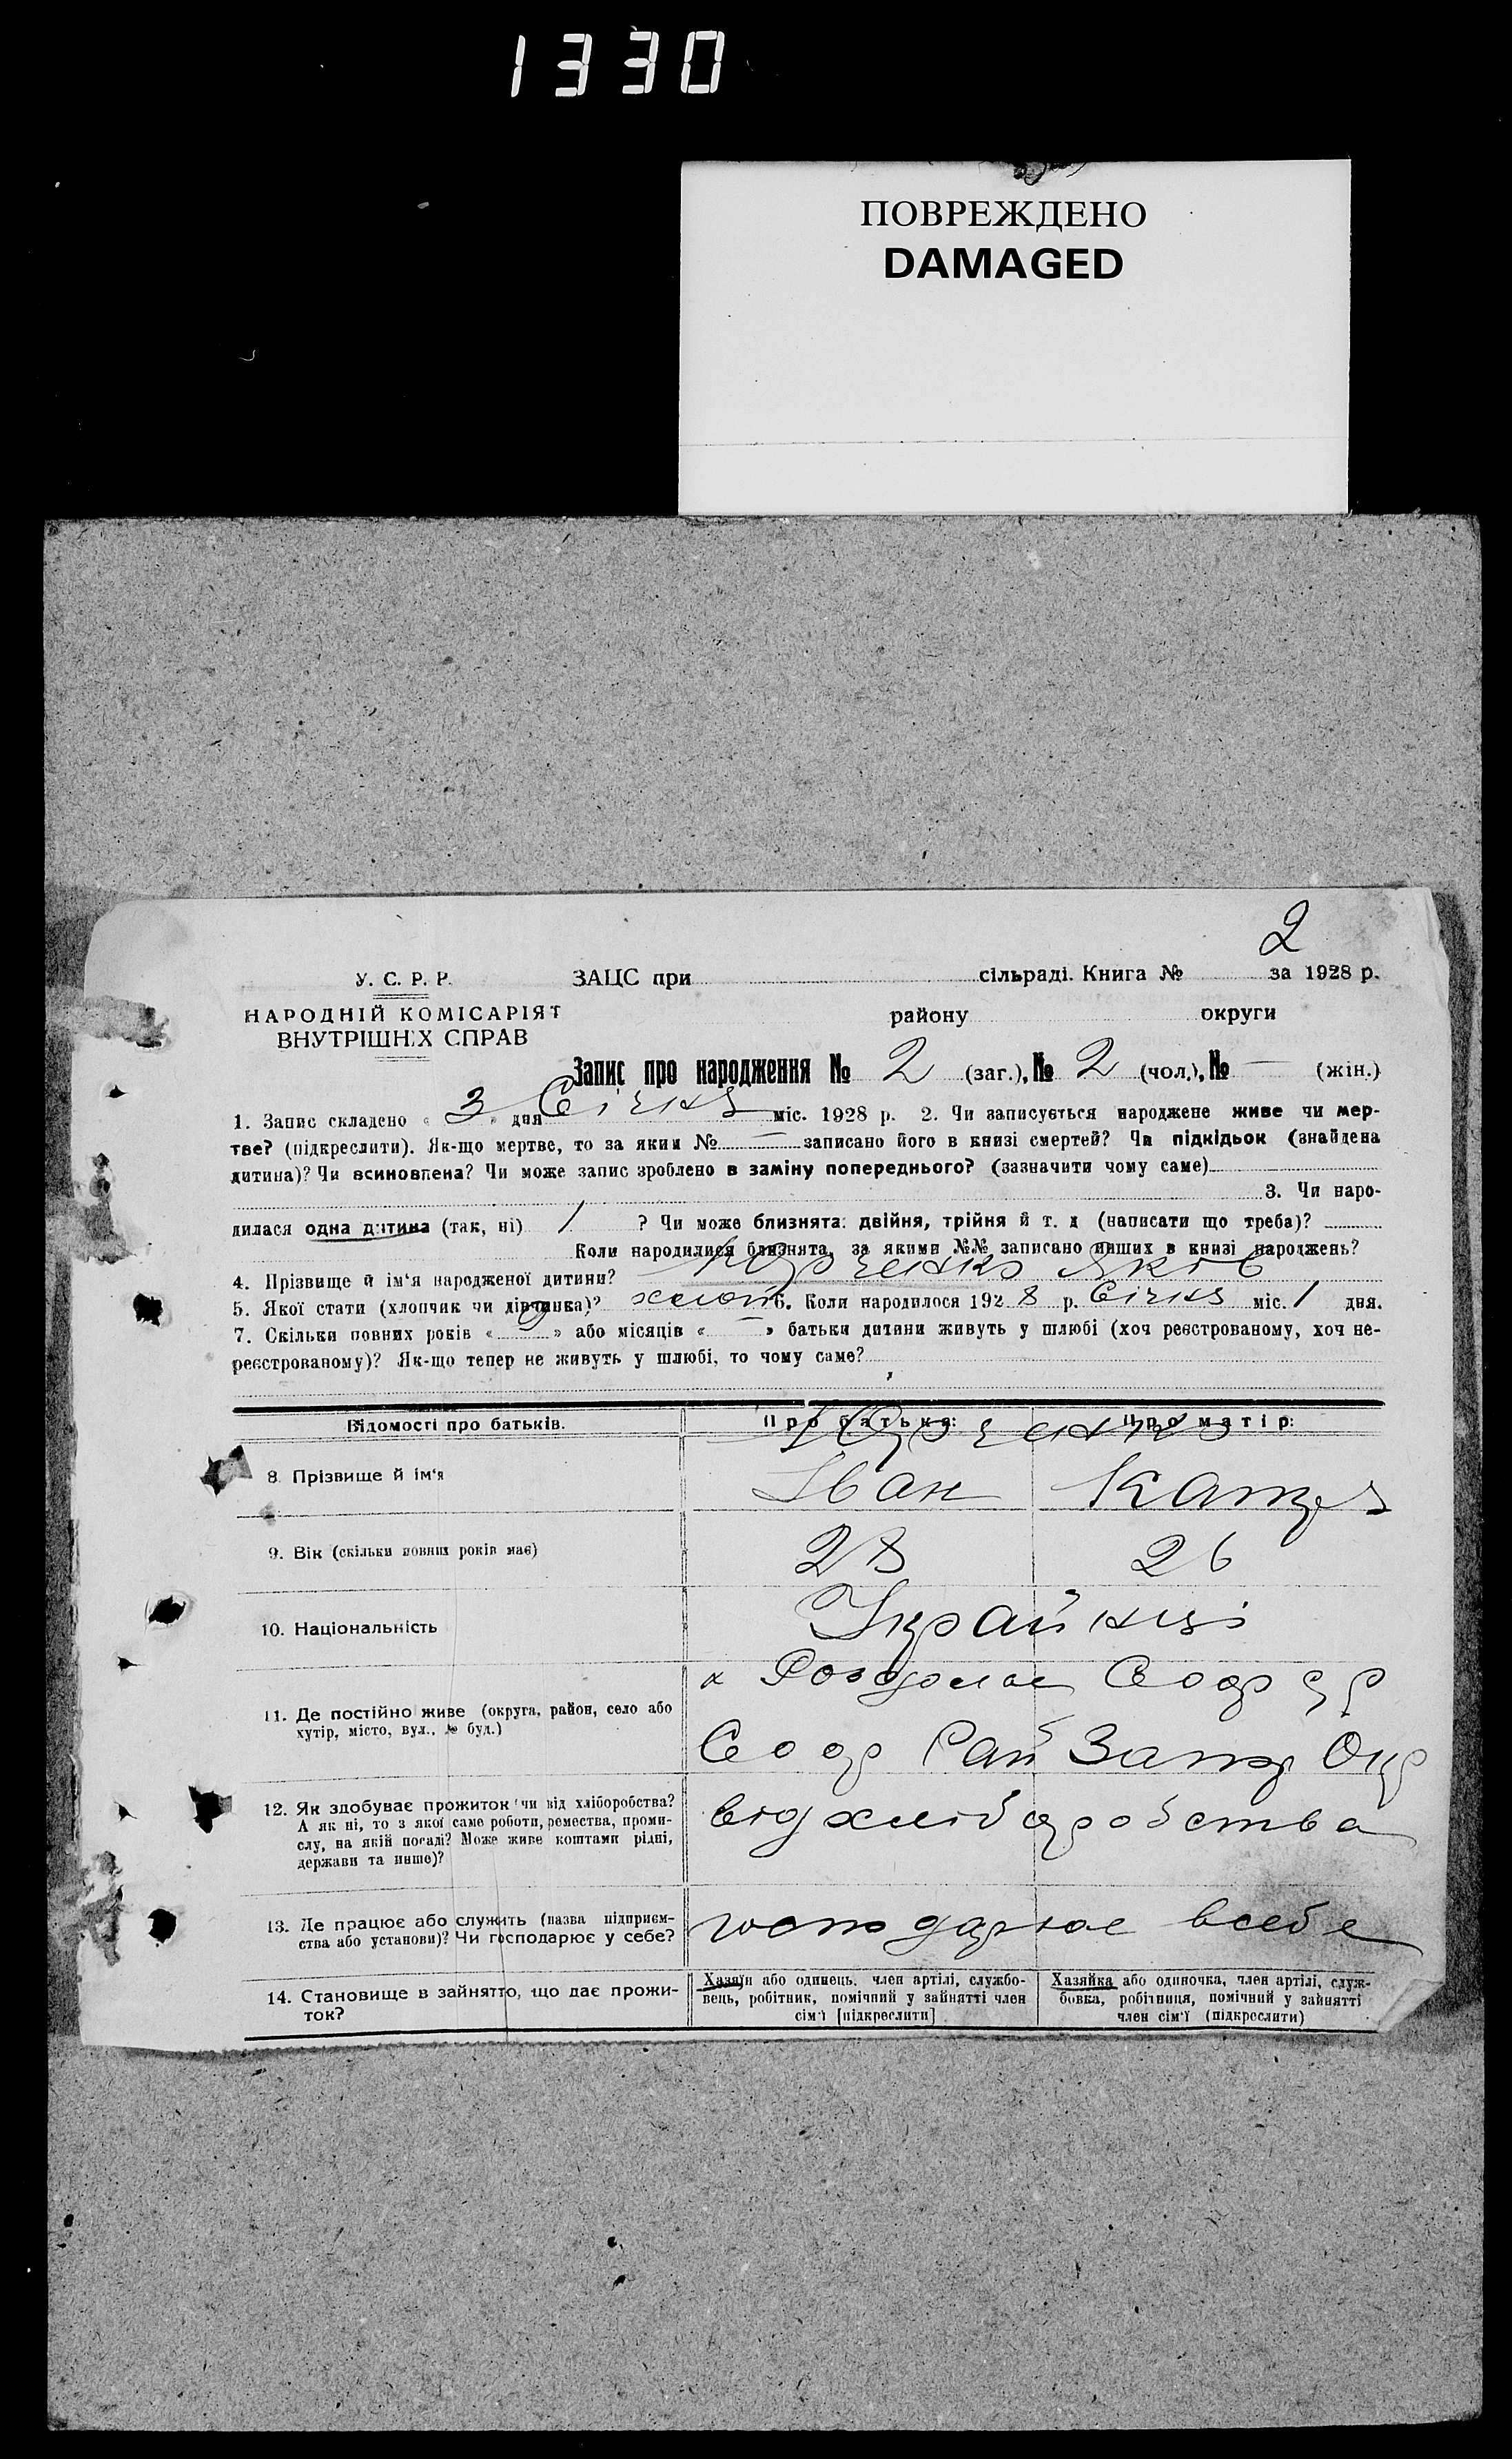 1330
ПОВРЕЖДЕНО
DAMAGED
2
У. С. Р. Р. ЗАЦС при сільраді. Книга № за 1928 р.
НАРОДНІЙ КОМІСАРІЯТ
району округи
ВНУТРІШНІХ СПРАВ
Запис про народження № 2 (заг.), № 2 (чол.), № — (жін.)
1. Запис складено « 3 » дня Січня міс. 1928 р. 2. Чи записується народжене живе чи мер-
тве? (підкреслити). Як-що мертве, то за яким № — записано його в книзі смертей? Чи підкідьок (знайдена
дитина)? Чи всиновлена? Чи може запис зроблено в заміну попереднього? (зазначити чому саме)
3. Чи наро-
дилася одна дитина (так, ні) / ? Чи може близнята: двійня, трійня й т. д (написати що треба)?
Коли народилися близнята, за якими №№ записано инших в книзі народжень?
4. Прізвище й ім'я народженої дитини? Яків
5. Якої стати (хлопчик чи дівчинка)? хлоп 6. Коли народилося 1928 р. Січня міс. 1 дня.
7. Скільки повних років « » або місяців « — » батьки дитини живуть у шлюбі (хоч реєстрованому, хоч не-
реєстрованому)? Як-що тепер не живуть у шлюбі, то чому саме?
Відомості про батьків. Про батька: Про матір:
8. Прізвище й ім'я Іван
9. Вік (скільки повних років має) 28 26
10. Національність Українці
11. Де постійно живе (округа, район, село або
хутір, місто, вул., № буд.)
Рай Запор Окр
12. Як здобуває прожиток чи від хліборобства?
А як ні, то з якої саме роботи, ремества, проми-
слу, на якій посаді? Може живе коштами рідні,
держави та инше)?
від хліборобства
13. Де працює або служить (назва підприєм-
ства або установи)? Чи господарює у себе?
господарює всебе
14. Становище в зайнятто, що дає прожи-
ток?
Хазяїн або одинець, член артілі, службо-
вець, робітник, помічний у зайнятті член
сім'ї [підкреслити]
Хазяйка або одиночка, член артілі, служ-
бовка, робітниця, помічний у зайнятті
член сім'ї (підкреслити)